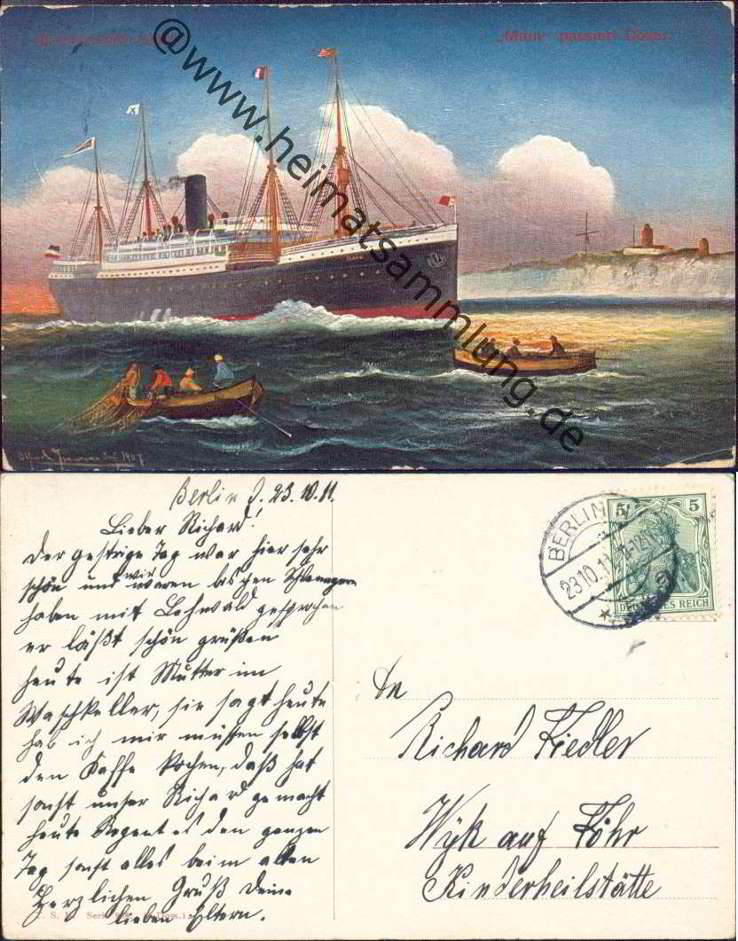 @www.heimatsammlung.de
1907
Berlin d. 23.10.11.
Lieber Richard!
Der gestrige Tag war hier sehr
schön und wir waren bis zen Schwagern
haben mit Lehwald gesprochen
er läßt schön grüßen
heute ist Mutter im
Waschkeller, sie sagt heute
hab ich mir müssen selbst
den Kaffe kochen, daß hat
sonst unser Richard gemacht
heute Regent es den ganzen
Tag sonst alles beim alten
Herzlichen Gruß deine
lieben Eltern.
S. Serie
BERLIN N
23.10.11
5 5
DEUTSCHES REICH
An
Richard Fiedler
Wyk auf Föhr
Kinderheilstätte